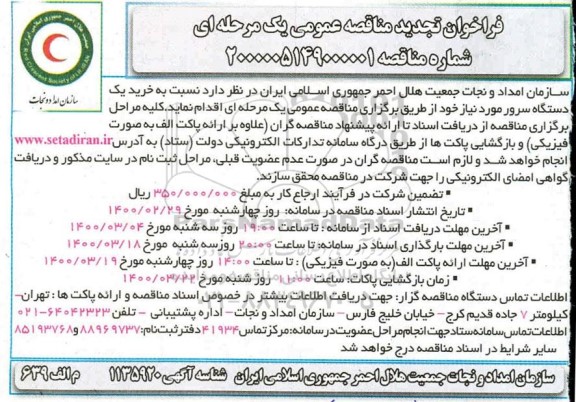 فراخوان تجدید مناقصه عمومی یک مرحله ای
شماره مناقصه ۲۰۰۰۰۰۵۱۴۹۰۰۰۰۰۱
سازمان امداد و نجات
سازمان امداد و نجات جمعیت هلال احمر جمهوری اسلامی ایران در نظر دارد نسبت به خرید یک
دستگاه سرور مورد نیاز خود از طریق برگزاری مناقصه عمومی یک مرحله ای اقدام نماید.کلیه مراحل
برگزاری مناقصه از دریافت اسناد تا ارائه پیشنهاد مناقصه گران (علاوه بر ارائه پاکت الف به صورت
فیزیکی) و بازگشایی پاکت ها از طریق درگاه سامانه تدارکات الکترونیکی دولت (ستاد) به آدرس www.setadiran.ir
انجام خواهد شد و لازم است مناقصه گران در صورت عدم عضویت قبلی، مراحل ثبت نام در سایت مذکور و دریافت
گواهی امضای الکترونیکی را جهت شرکت در مناقصه محقق سازند.
• تضمین شرکت در فرآیند ارجاع کار به مبلغ ۳۵۰/۰۰۰/۰۰۰ ریال
• تاریخ انتشار اسناد مناقصه در سامانه: روز چهارشنبه مورخ ۱۴۰۰/۰۲/۲۹
• آخرین مهلت دریافت اسناد از سامانه : تا ساعت ۱۹:۰۰ روز سه شنبه مورخ ۱۴۰۰/۰۳/۰۴
• آخرین مهلت بارگذاری اسناد در سامانه: تا ساعت ۲۰:۰۰ روز سه شنبه مورخ ۱۴۰۰/۰۳/۱۸
• آخرین مهلت ارائه پاکت الف(به صورت فیزیکی) : تا ساعت ۱۴:۰۰ روز چهارشنبه مورخ ۱۴۰۰/۰۳/۱۹
• زمان بازگشایی پاکات: ساعت ۱۰:۰۰ روز شنبه مورخ ۱۴۰۰/۰۳/۲۲
اطلاعات تماس دستگاه مناقصه گزار: جهت دریافت اطلاعات بیشتر در خصوص اسناد مناقصه و ارائه پاکت ها : تهران–
کیلومتر ۷ جاده قدیم کرج– خیابان خلیج فارس – سازمان امداد و نجات – اداره پشتیبانی – تلفن ۶۴۰۴۲۳۲۳-۰۲۱
اطلاعات تماس سامانه ستاد جهت انجام مراحل عضویت در سامانه: مرکز تماس ۴۱۹۳۴ دفتر ثبت نام: ۸۸۹۶۹۷۳۷ و ۸۵۱۹۳۷۶۸
سایر شرایط در اسناد مناقصه درج خواهد شد
سازمان امداد و نجات جمعیت هلال احمر جمهوری اسلامی ایران شناسه آگهی ۱۱۳۵۹۲۰ م الف ۶۳۹